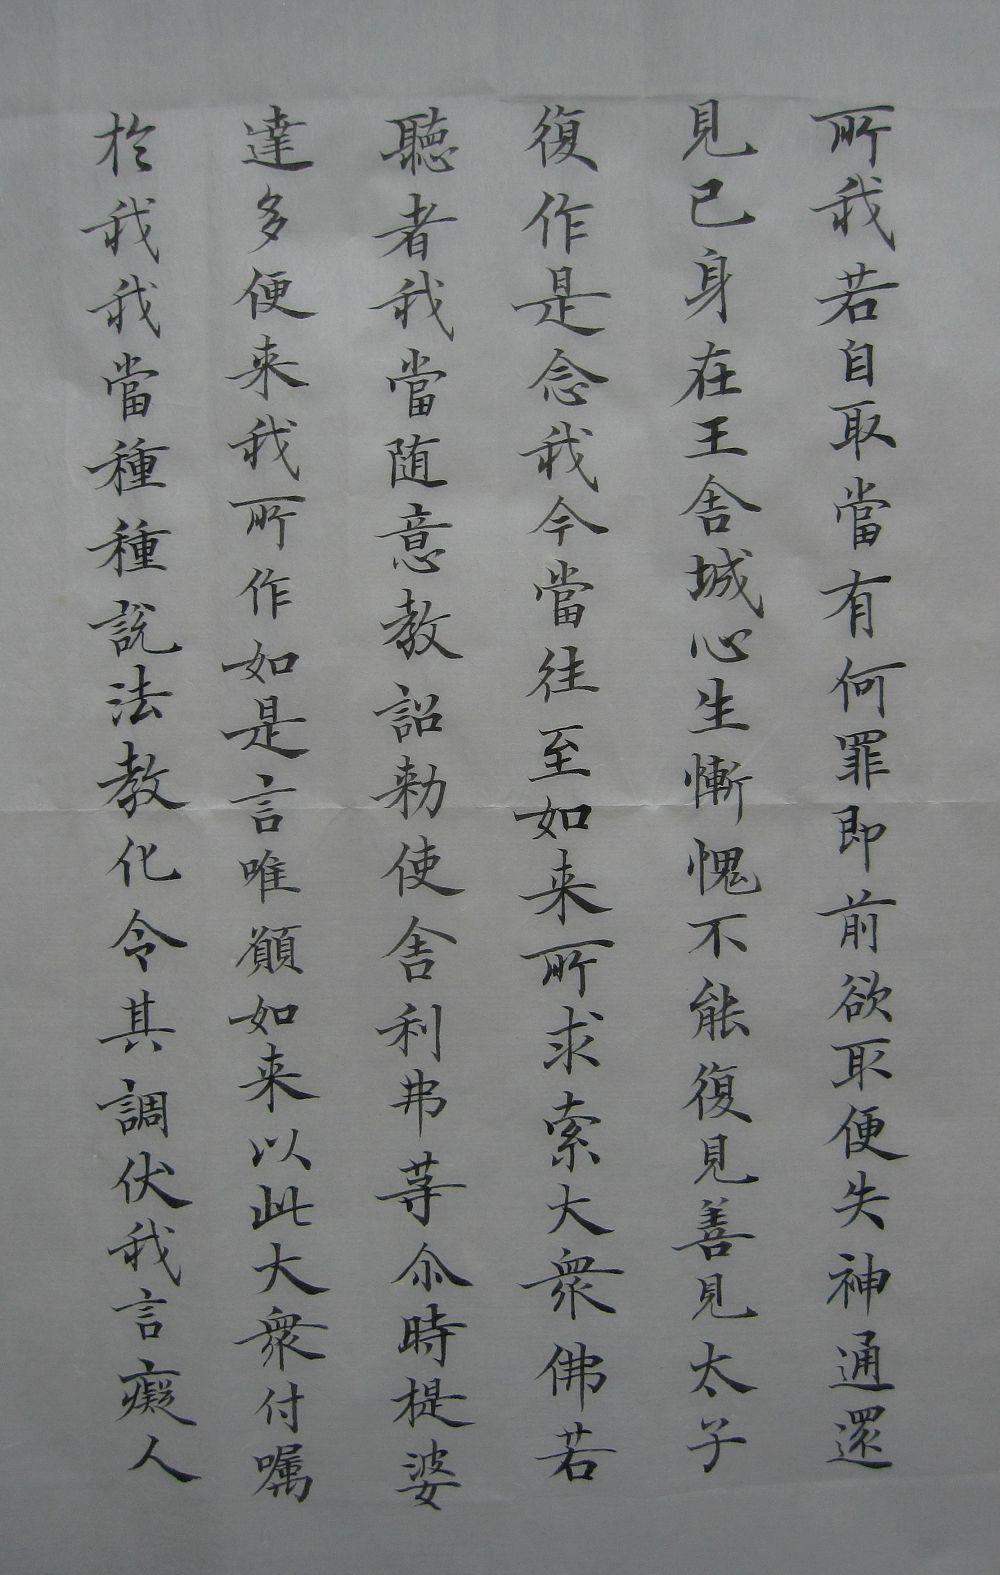 所我若自取當有何罪即前欲取便失神通還
見已身在王舍城心生慚愧不能復見善見太子
復作是念我今當往至如来所求索大衆佛若
聽者我當随意教詔勑使舍利弗等尒時提婆
達多便来我所作如是言唯願如来以此大衆付嘱
於我我當種種說法教化令其調伏我言癡人